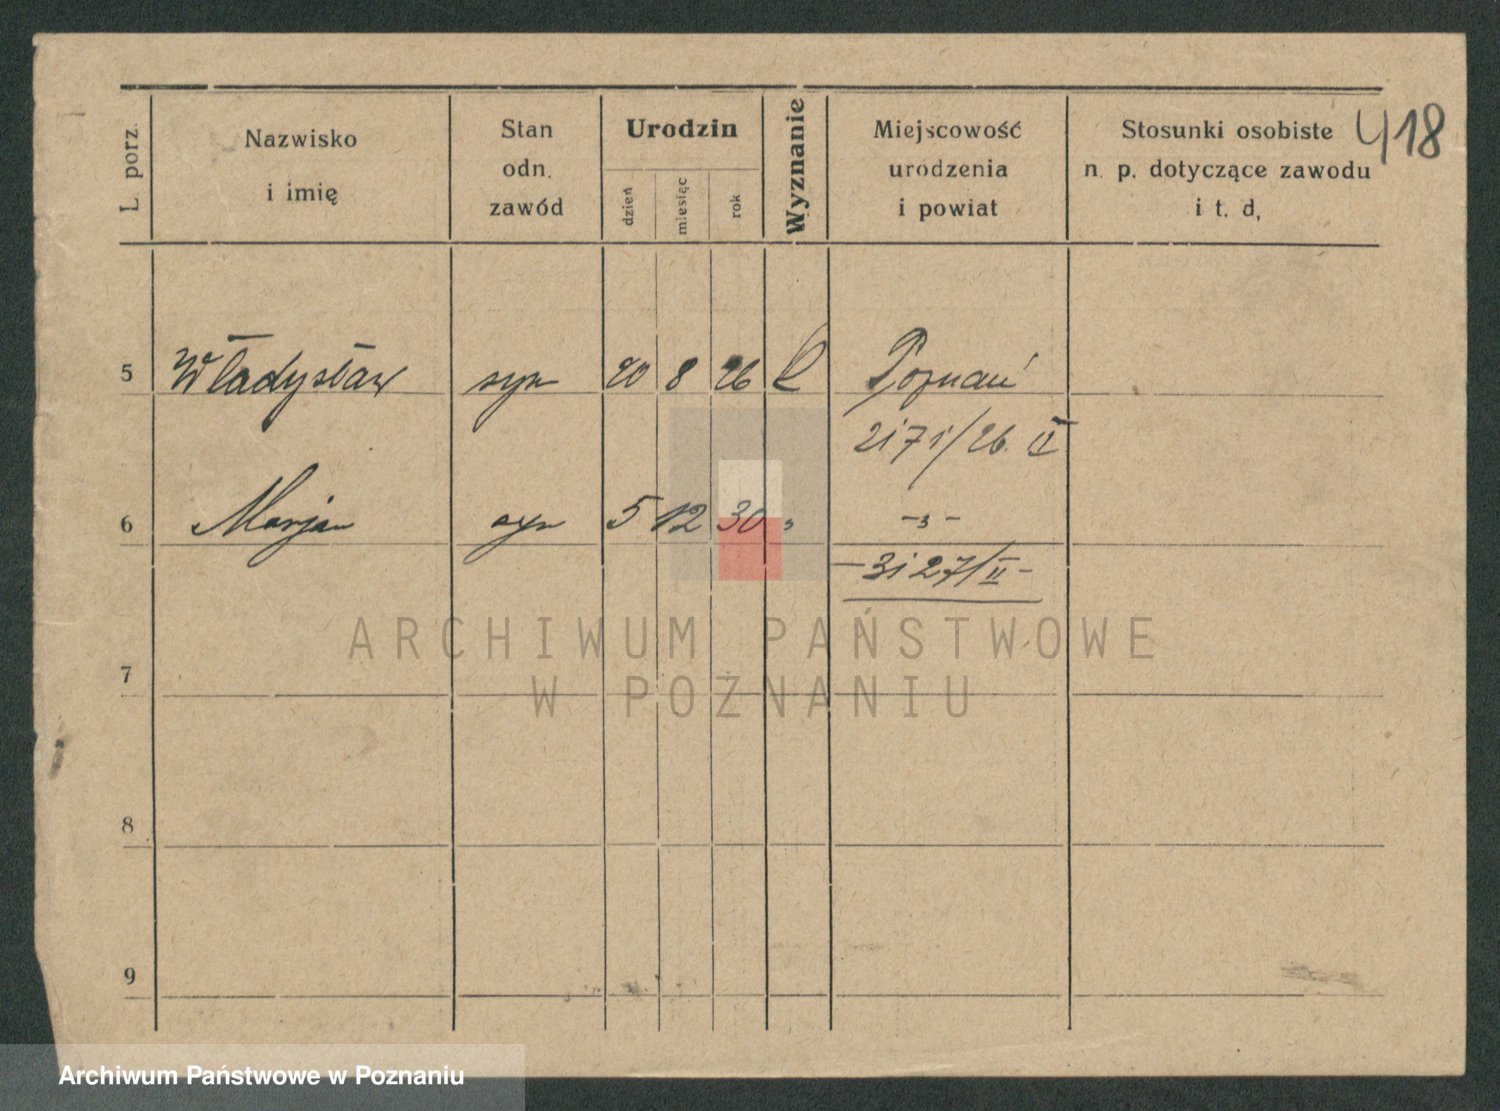 418
L. porz.
Nazwisko
i imię
Stan
odn.
zawód
Urodzin
dzień
miesiąc
rok
Wyznanie
Miejscowość
urodzenia
i powiat
Stosunki osobiste
n. p. dotyczące zawodu
i t. d,
5 Władysław syn 20 8 26 k Poznań
2171/26. II
6 Marjan syn 5 12 30 " -"-
-3127/II-
7
8
9
ARCHIWUM PAŃSTWOWE
W POZNANIU
Archiwum Państwowe w Poznaniu